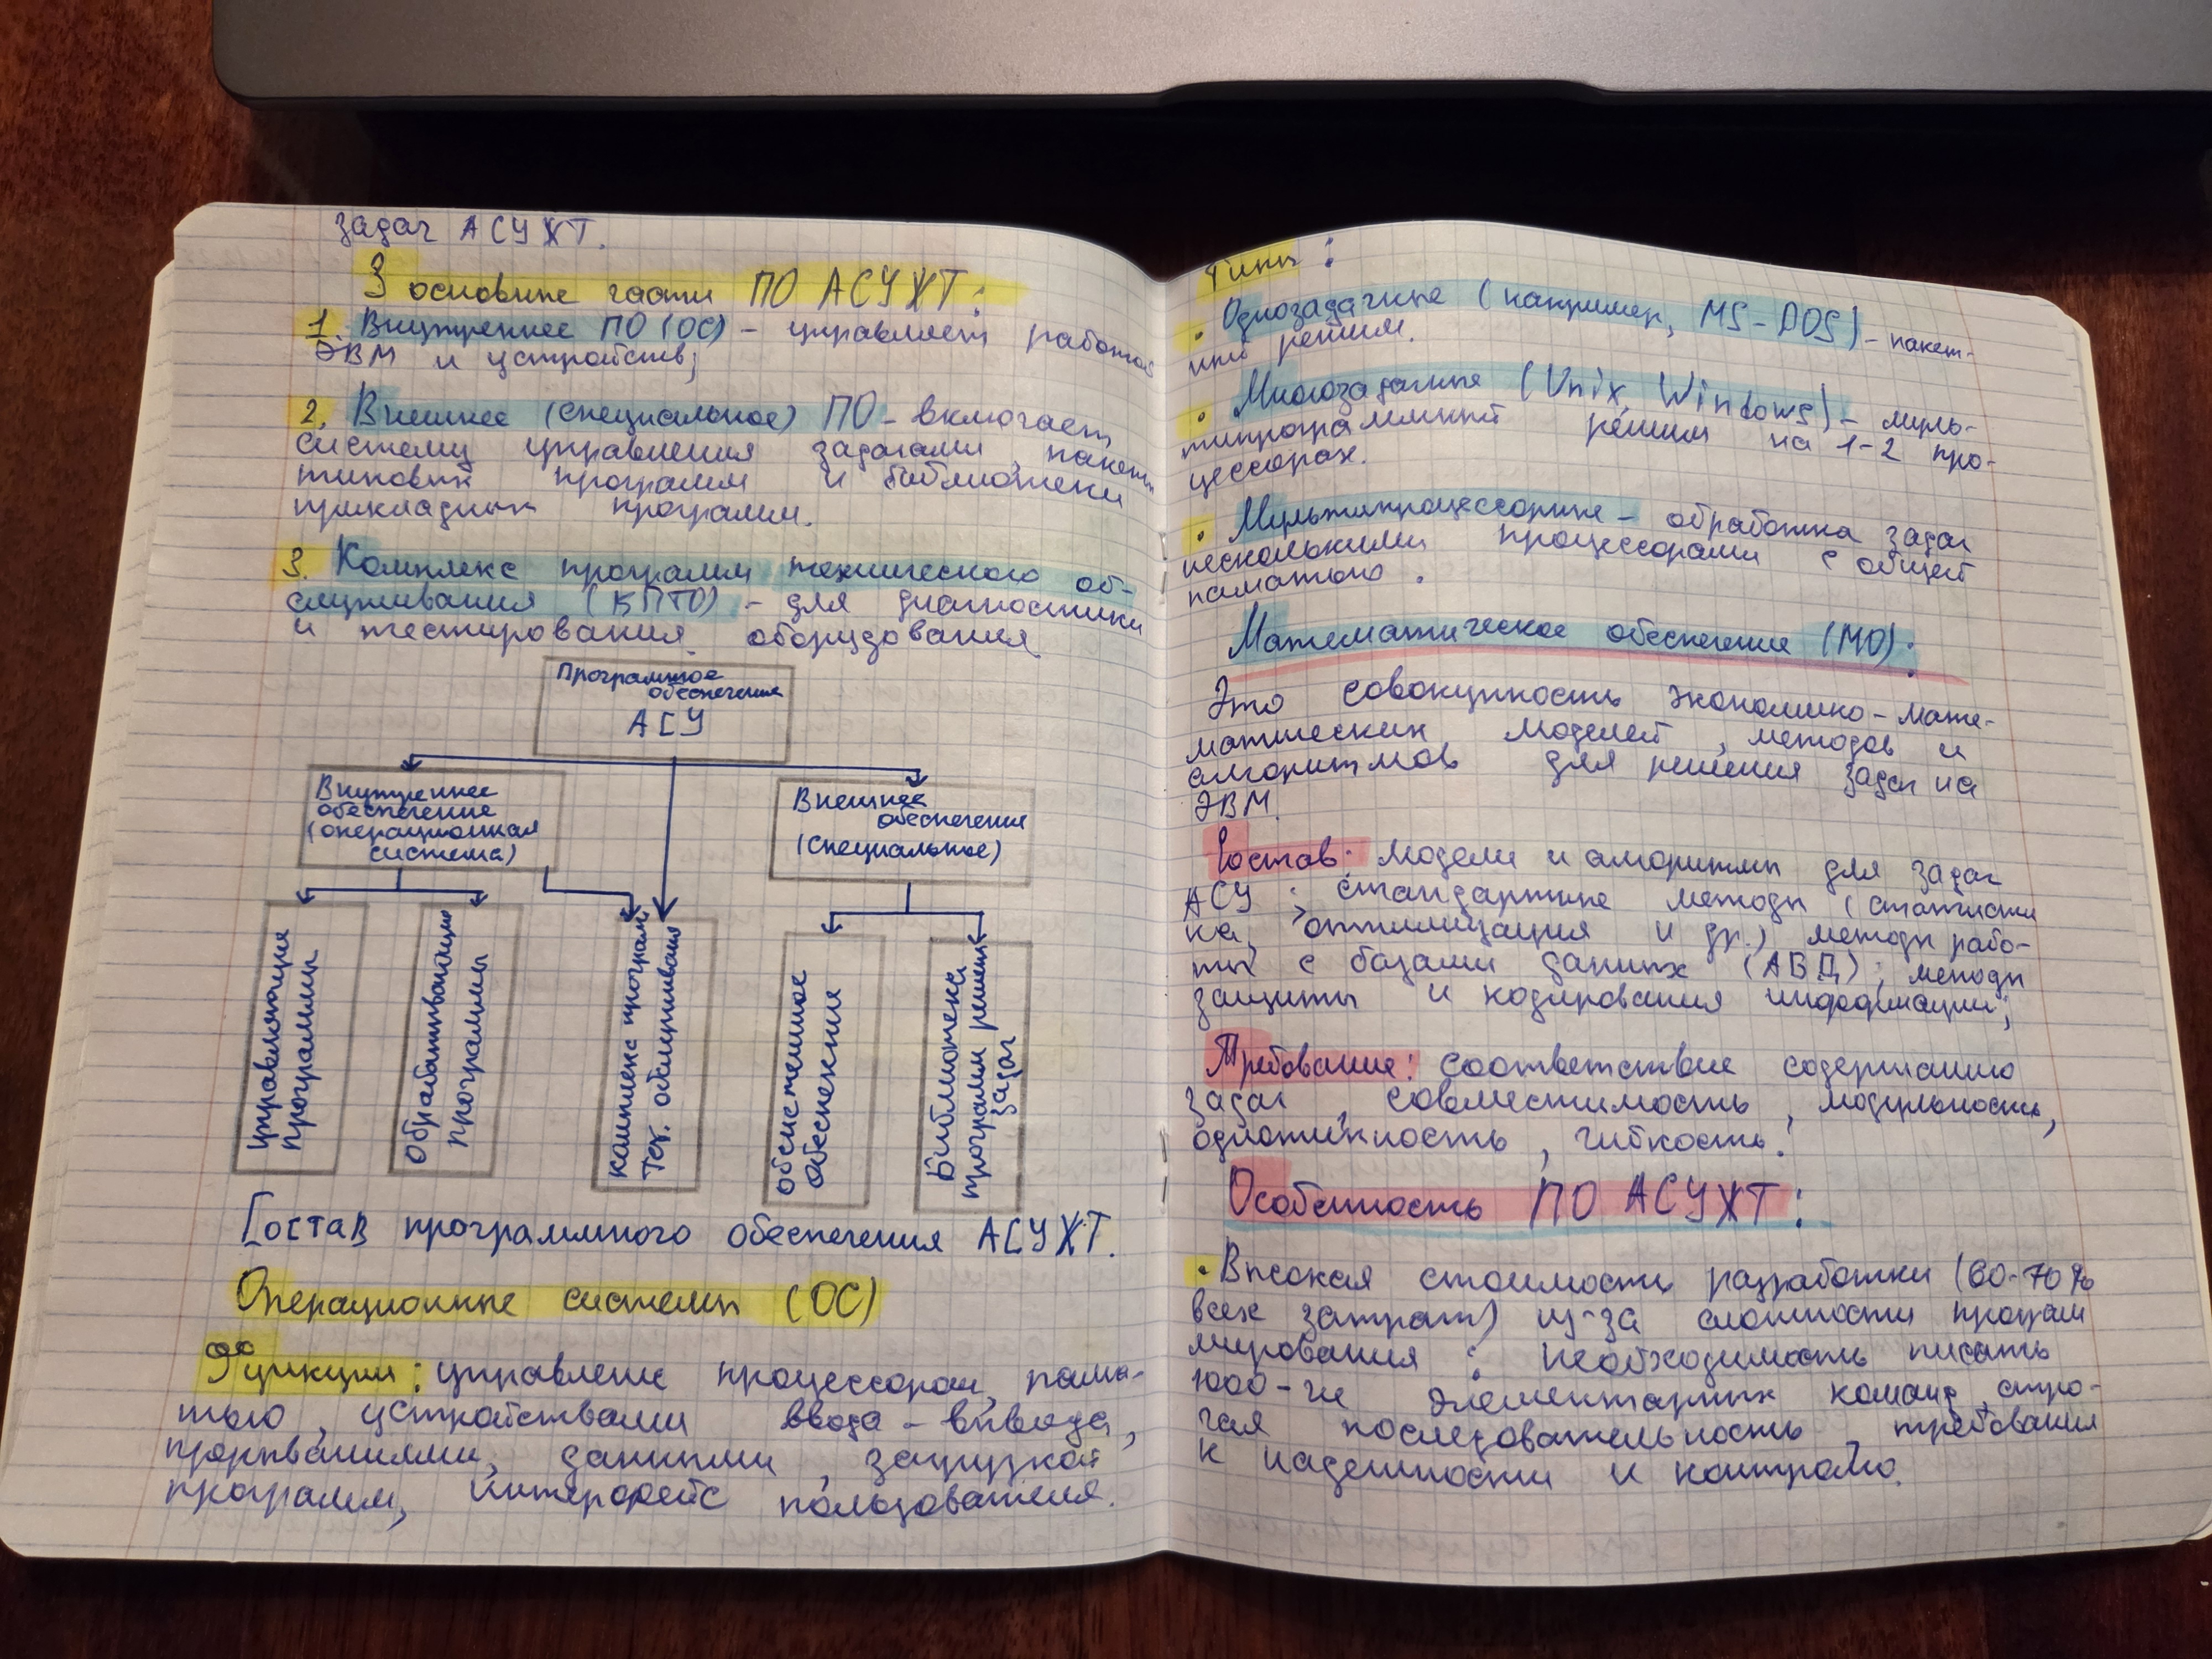 задач АСУЖТ.
3 основные части ПО АСУЖТ:
1. Внутреннее ПО (ОС) – управляет работой
ЭВМ и устройств;
2. Внешнее (специальное) ПО – включает
систему управления задачами, пакеты
типовых программ и библиотеки
прикладных программ.
3. Комплекс программ технического об-
служивания (КПТО) – для диагностики
и тестирования оборудования
Программное
обеспечение
АСУ
Внутреннее
обеспечение
(операционная
система)
Внешнее
обеспечение
(специальное)
Управляющие
программы
Обрабатывающие
программы
комплекс програм
Тех. обслуживания
обсистемное
обеспечение
Библиотека
программ решения
задач
Состав программного обеспечения АСУЖТ.
Операционные системы (ОС)
Функции: управление процессором, памя-
тью, устройствами ввода – вывода,
прерываниями, данными, загрузкой
программ, интерфейс пользователя.
Типы:
• Однозадачные (например, MS-DOS) – пакет-
ный режим.
• Многозадачные (Unix, Windows) – муль-
типрограммный режим на 1-2 про-
цессорах.
• Мультипроцессорные – обработка задач
несколькими процессорами с общей
памятью.
Математическое обеспечение (МО):
Это совокупность экономико-мате-
матических моделей, методов и
алгоритмов для решения задач на
ЭВМ.
Состав: модели и алгоритмы для задач
АСУ; стандартные методы (статисти
ка, оптимизация и др.) методы рабо-
ты с базами данных (АБД); методы
защиты и кодирования информации;
Требование: соответствие содержанию
задач, совместимость, модульность,
однотипность, гибкость.
Особенность ПО АСУЖТ:
• Высокая стоимость разработки (60-70%
всех затрат) из-за сложности програм
мирования: необходимость писать
1000-чи элементарных команд, стро-
гая последовательность, требования
к надежности и контролю.